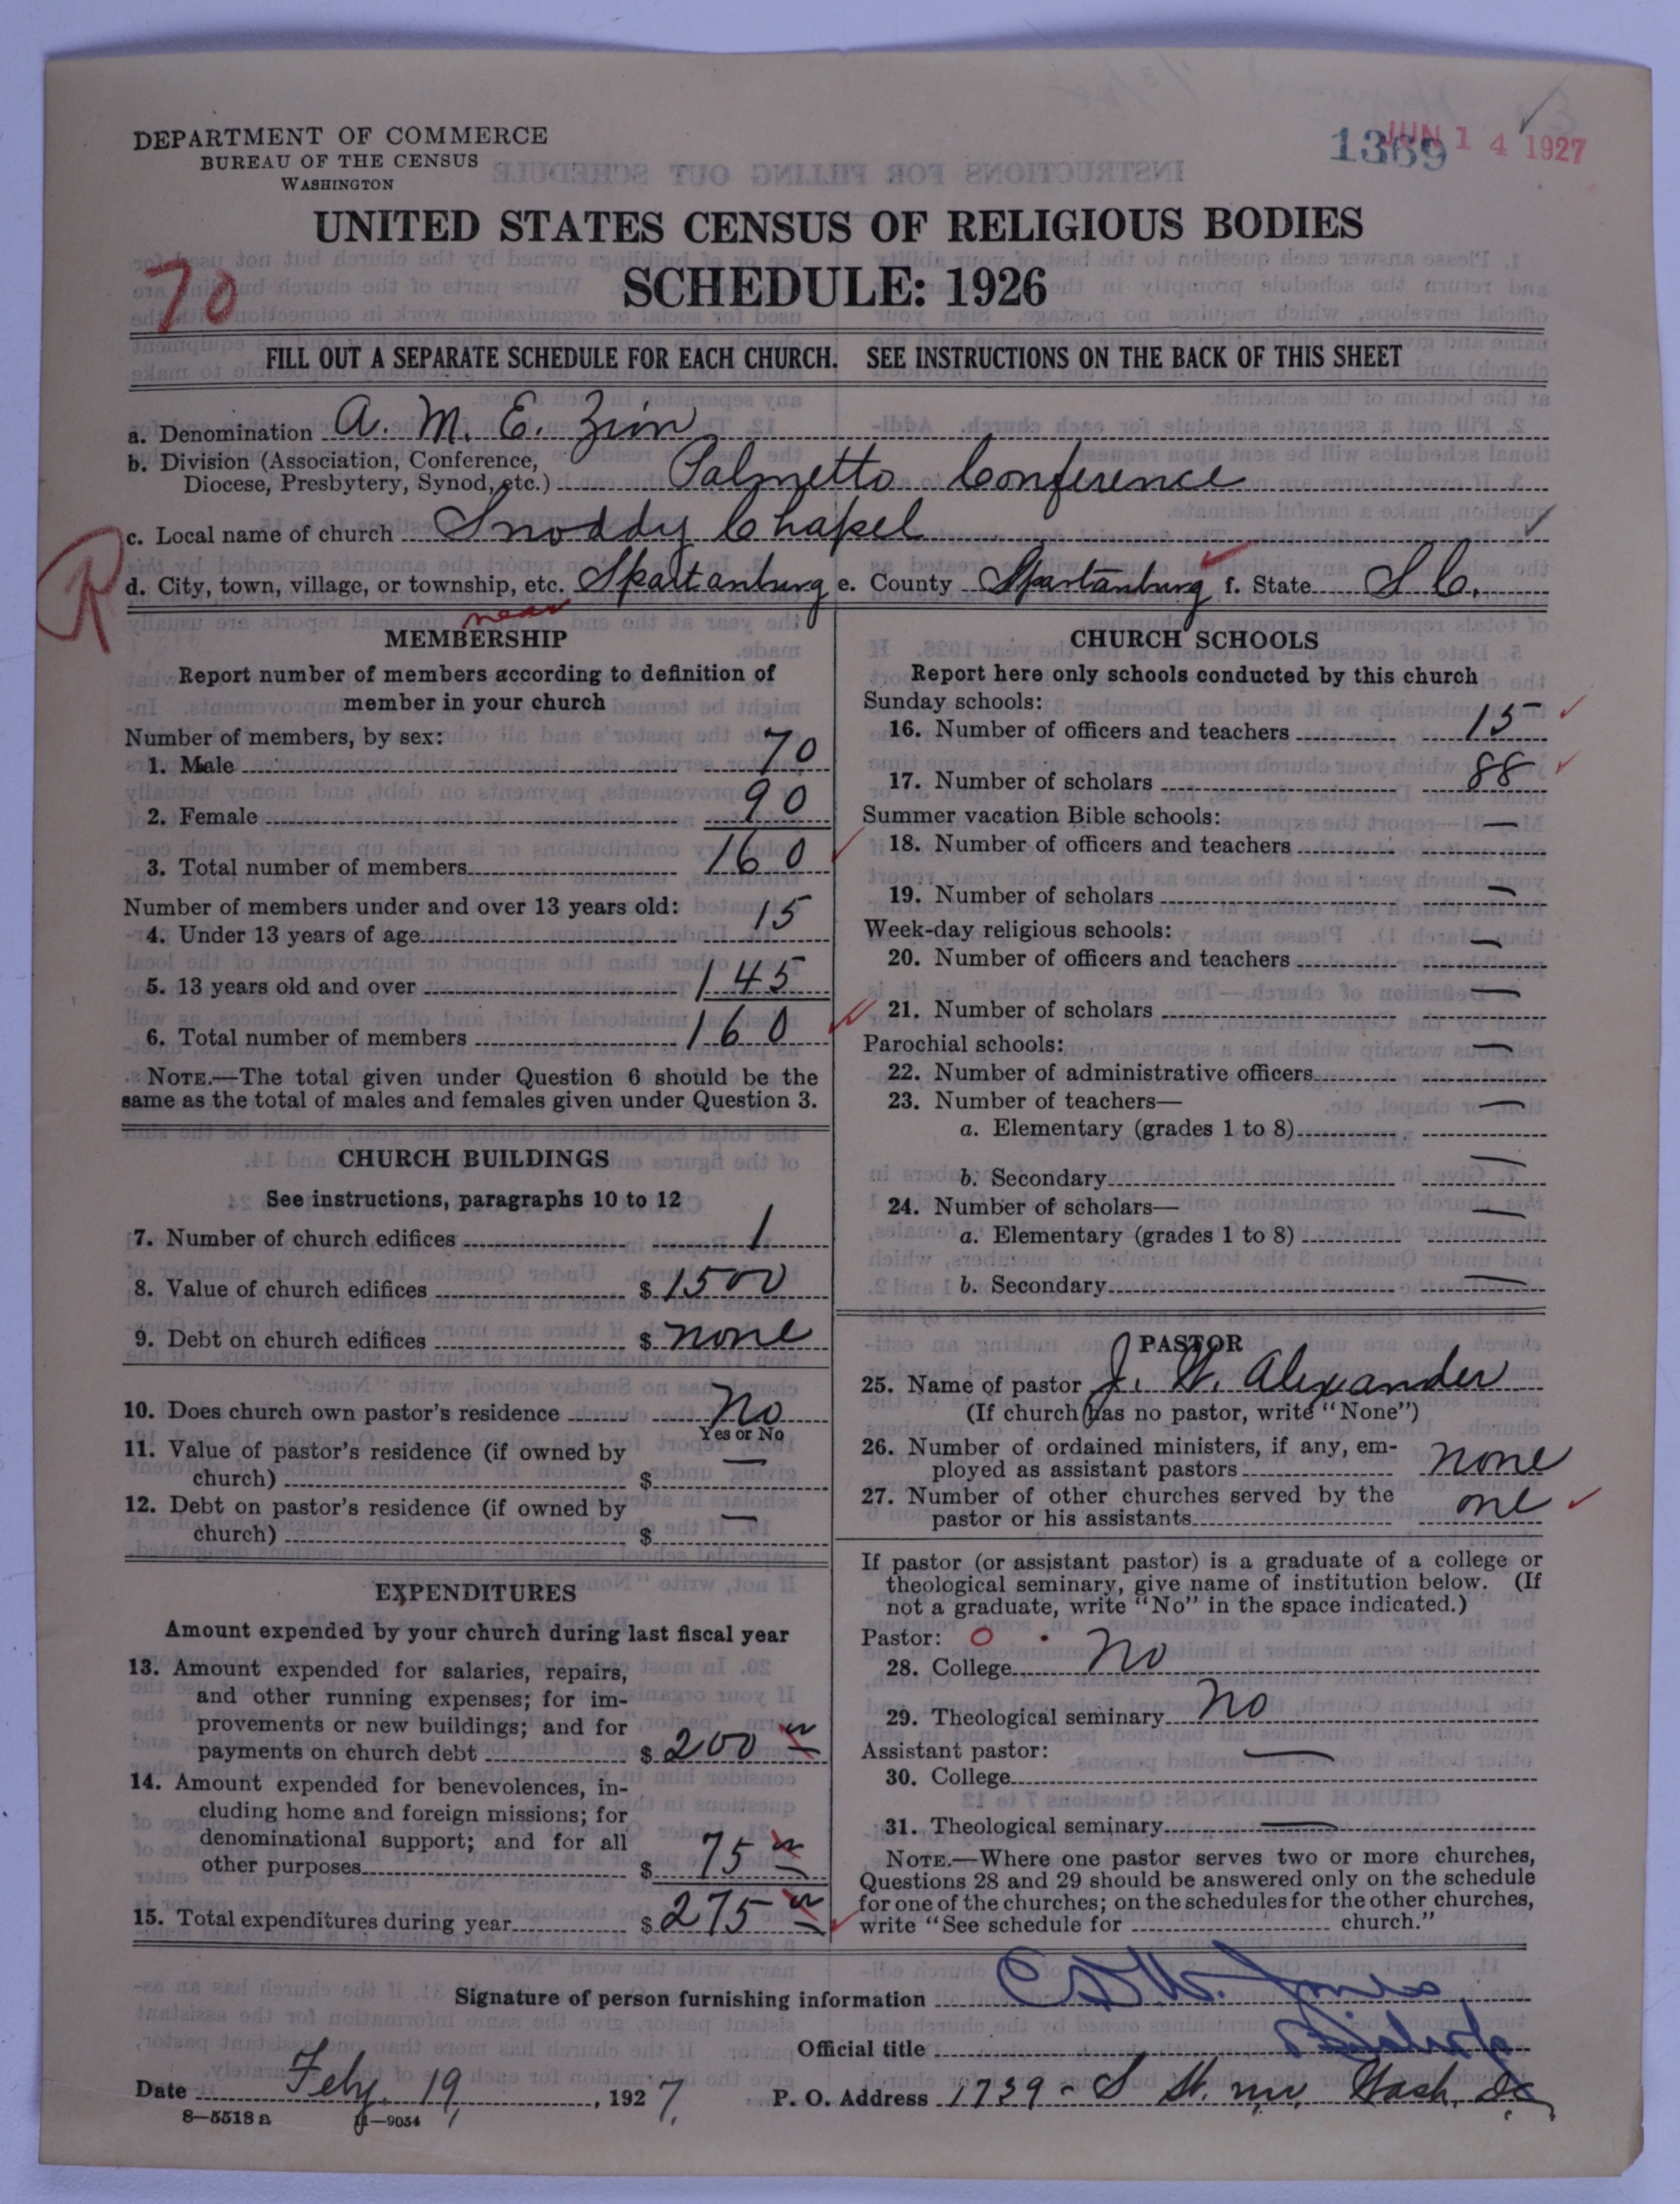 DEPARTMENT OF COMMERCE
BUREAU OF THE CENSUS
WASHINGTON
1369 JUN 14 1927
UNITED STATES CENSUS OF RELIGIOUS BODIES
SCHEDULE: 1926
70
FILL OUT A SEPARATE SCHEDULE FOR EACH CHURCH. SEE INSTRUCTIONS ON THE BACK OF THIS SHEET
a. Denomination A. M. E. Zion
b. Division (Association, Conference,
Diocese, Presbytery, Synod, etc.) Palmetto Conference
c. Local name of church Snoddy Chapel
R
d. City, town, village, or township, etc. Spartanburg e. County Spartanburg f. State S.C.
near
MEMBERSHIP
Report number of members according to definition of
member in your church
Number of members, by sex:
1. Male 70
2. Female 90
3. Total number of members 160
Number of members under and over 13 years old:
4. Under 13 years of age 15
5. 13 years old and over 145
6. Total number of members 160
NOTE.—The total given under Question 6 should be the
same as the total of males and females given under Question 3.
CHURCH BUILDINGS
See instructions, paragraphs 10 to 12
7. Number of church edifices 1
8. Value of church edifices $ 1500
9. Debt on church edifices $ none
10. Does church own pastor's residence No
Yes or No
11. Value of pastor's residence (if owned by
church) $ —
12. Debt on pastor's residence (if owned by
church) $ —
EXPENDITURES
Amount expended by your church during last fiscal year
13. Amount expended for salaries, repairs,
and other running expenses; for im-
provements or new buildings; and for
payments on church debt $ 200
14. Amount expended for benevolences, in-
cluding home and foreign missions; for
denominational support; and for all
other purposes $ 75
15. Total expenditures during year $ 275
CHURCH SCHOOLS
Report here only schools conducted by this church
Sunday schools:
16. Number of officers and teachers 15
17. Number of scholars 88
Summer vacation Bible schools:
18. Number of officers and teachers —
19. Number of scholars —
Week-day religious schools:
20. Number of officers and teachers —
21. Number of scholars —
Parochial schools:
22. Number of administrative officers —
23. Number of teachers—
a. Elementary (grades 1 to 8) —
b. Secondary —
24. Number of scholars—
a. Elementary (grades 1 to 8) —
b. Secondary —
PASTOR
25. Name of pastor J. W. Alexander
(If church has no pastor, write "None")
26. Number of ordained ministers, if any, em-
ployed as assistant pastors none
27. Number of other churches served by the
pastor or his assistants one
If pastor (or assistant pastor) is a graduate of a college or
theological seminary, give name of institution below. (If
not a graduate, write "No" in the space indicated.)
Pastor: O
28. College No
29. Theological seminary No
Assistant pastor:
30. College —
31. Theological seminary —
NOTE.—Where one pastor serves two or more churches,
Questions 28 and 29 should be answered only on the schedule
for one of the churches; on the schedules for the other churches,
write "See schedule for church."
Signature of person furnishing information W. Jones
Official title Bishop
Date Feby. 19, 1927. P. O. Address 1739 - S St. nw, Wash, DC
8—5518 a 11—9054